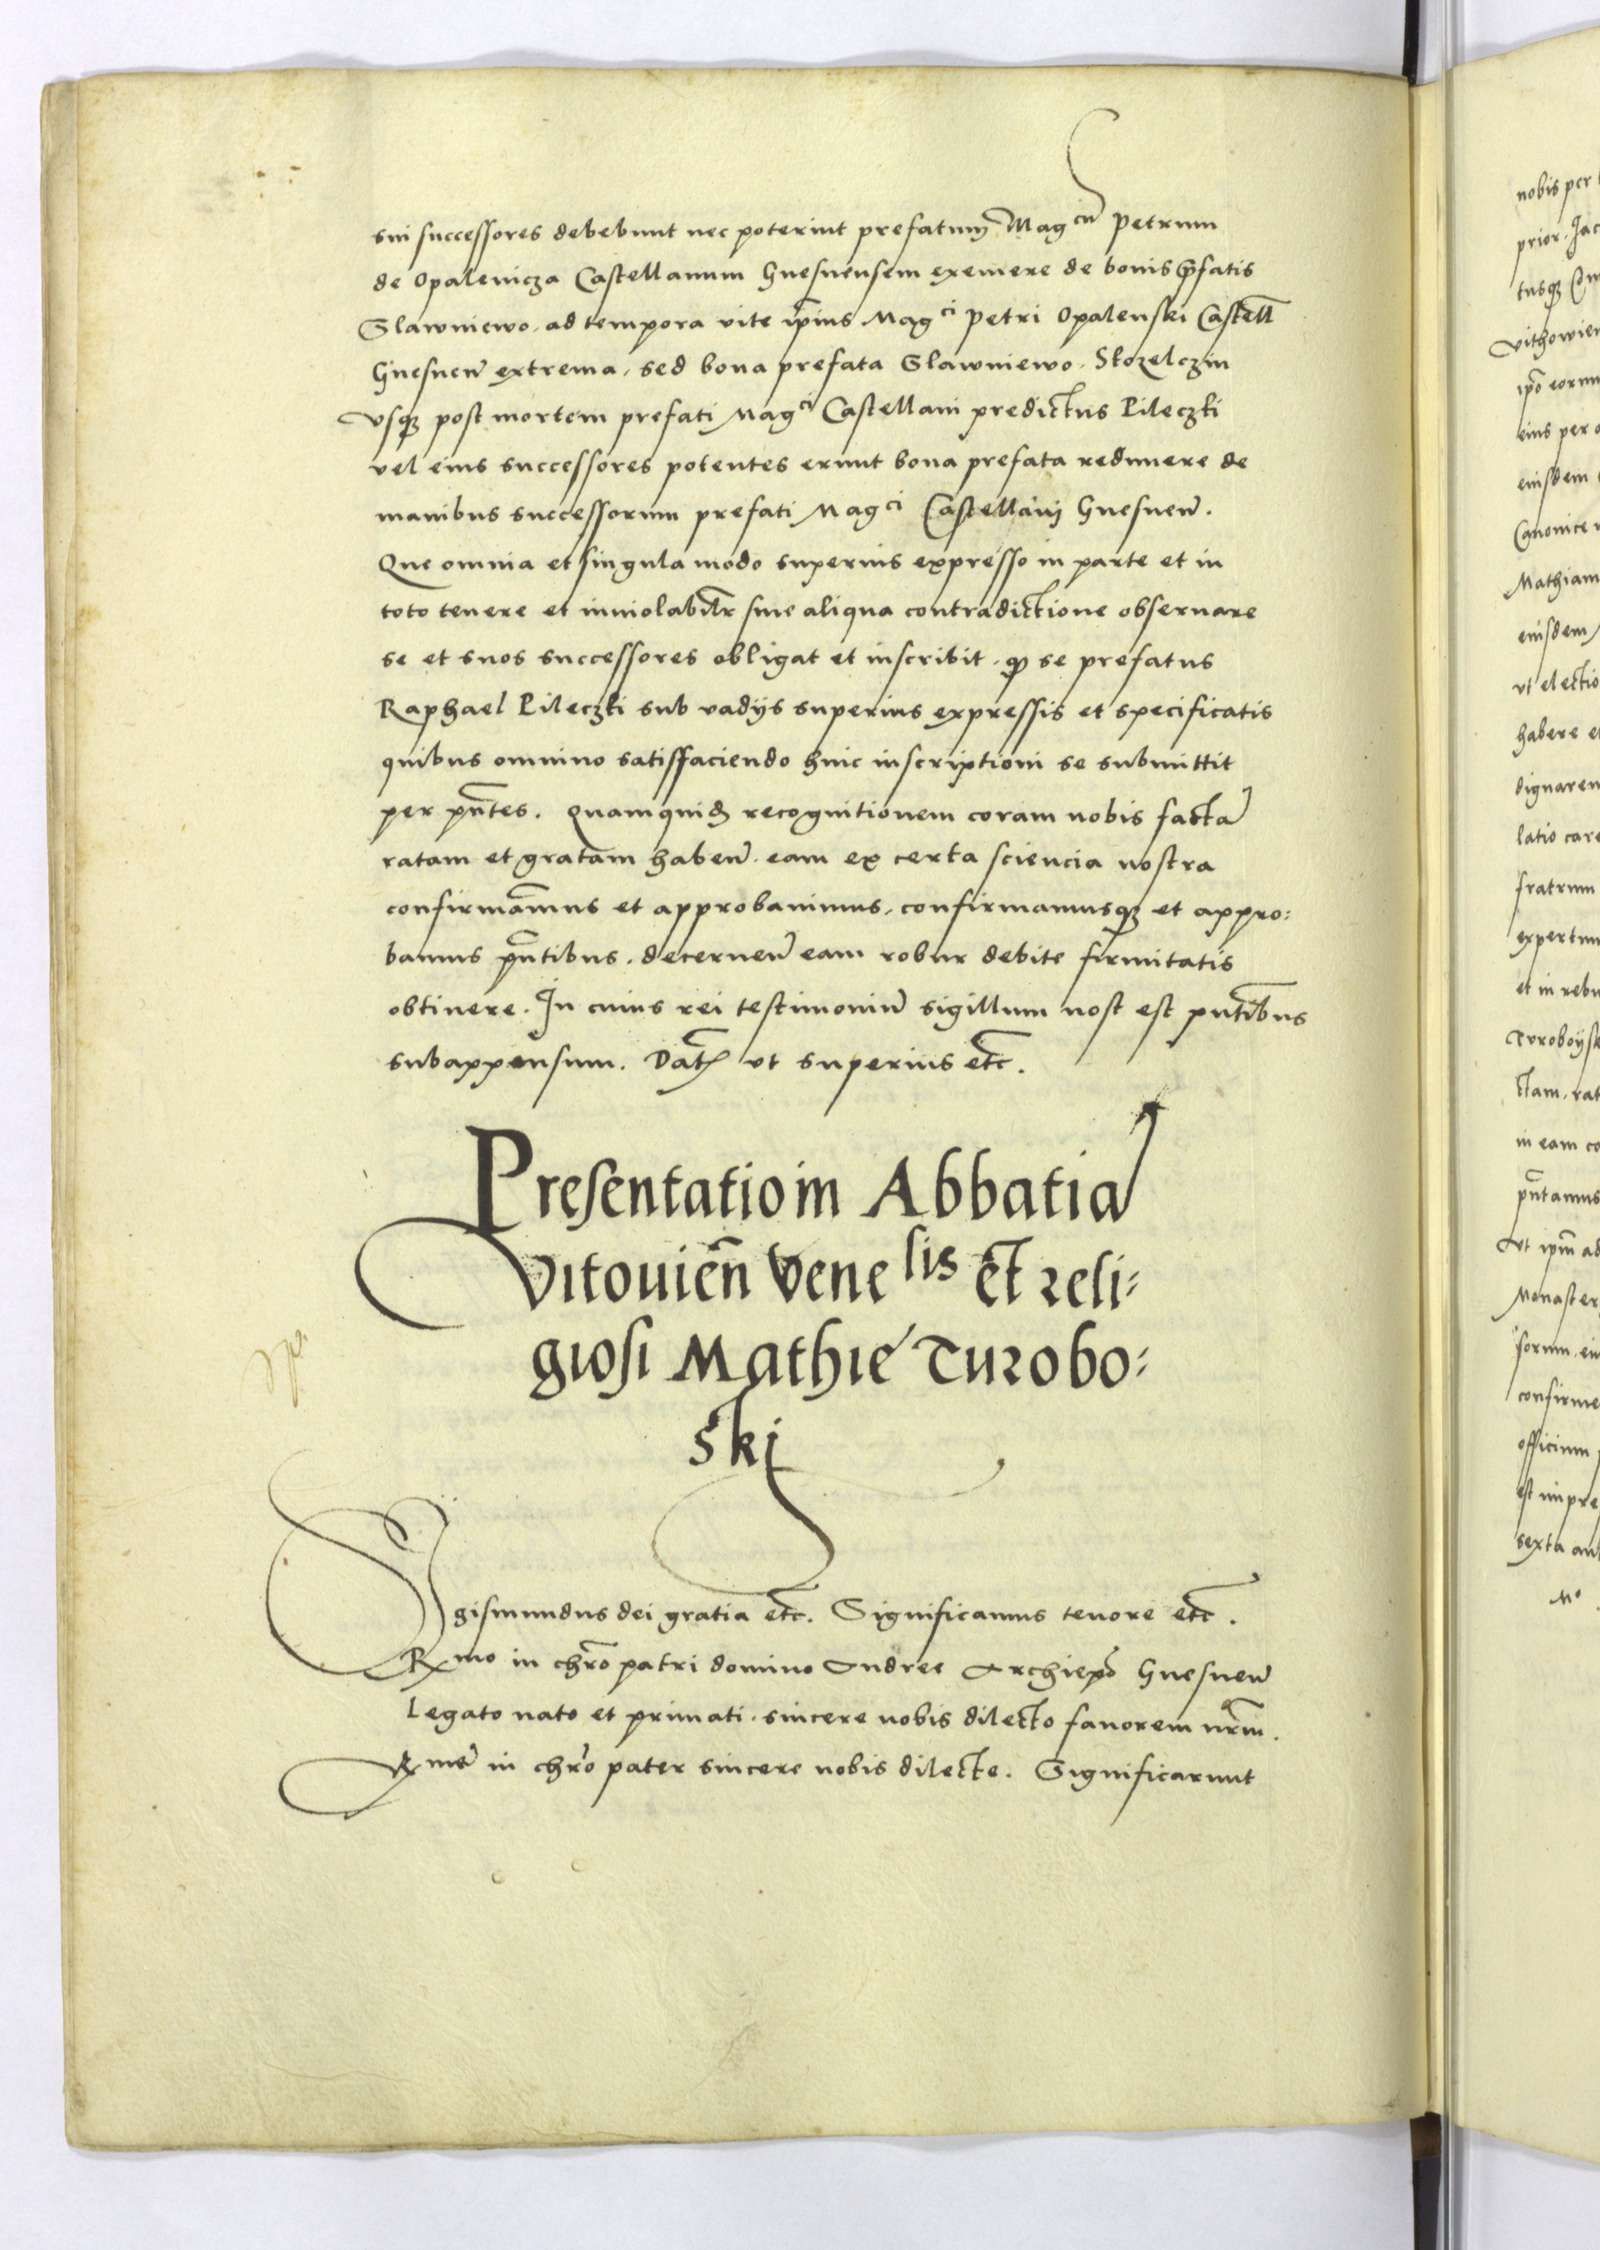 sui successores debebunt nec poterint prefatum Mag cũ Petrum
de Opalenicza Castellanum Gnesnensem exemere de bonis p̃fatis
Slawniewo, ad tempora vite ip̃ius Mag ci Petri Opalenski Castell̃
Gnesneñ extrema, sed bona prefata Slawniewo, Strzelczin
Vsq post mortem prefati Mag ci Castellani predictus Pileczki
vel eius successores potentes erunt bona prefata redimere de
manibus successorum prefati Mag ci Castellani Gnesneñ.
Que omnia et singula modo superius expresso in parte et in
toto tenere et inuiolabil̃r sine aliqua contradictione obseruare
se et suos successores obligat et inscribit, qȝ se prefatus
Raphael Pileczki sub vadijs superius expressis et specificatis
quibus omnino satisfaciendo huic inscriptioni se submittit
per pñtes. Quamquid recognitionem coram nobis factã
ratam et gratam habeñ. eam ex certa sciencia nostra
confirmamus et approbauimus, confirmamusqȝ et appro:
bamus pñtibus, decerneñ eam robur debite firmitatis
obtinere. In cuius rei testimoniũ sigillum nost est pñtibus
subappensum. Dat̃ vt superius etc̃.
Presentatio in Abbatiã
Vitouieñ Vene lis et reli:
giosi Mathie Turobo:
ski
Sigismundus dei gratia etc̃. Significamus tenore etc̃.
Rmo in chr̃o patri domino Andree Archiep̃o Gnesneñ
Legato nato et primati, sincere nobis dilecto fauorem nr̃m.
Rmẽ in chr̃o pater sincere nobis dilecte. Significarunt
nobis per
prior. Jac
tusqȝ Con
Vithowien
ip̃o eorum
eius per
eiusdem
Canonice
Mathiam
eiusdem
vt electio
habere et
dignarem
latio care
fratrum
expertum
et in rebu
Turoboysk
ctam, rat
in eam co
pñtamus
Vt ip̃m ad
Monaster
sorum, eiu
confirme
officium
est impre
sexta an